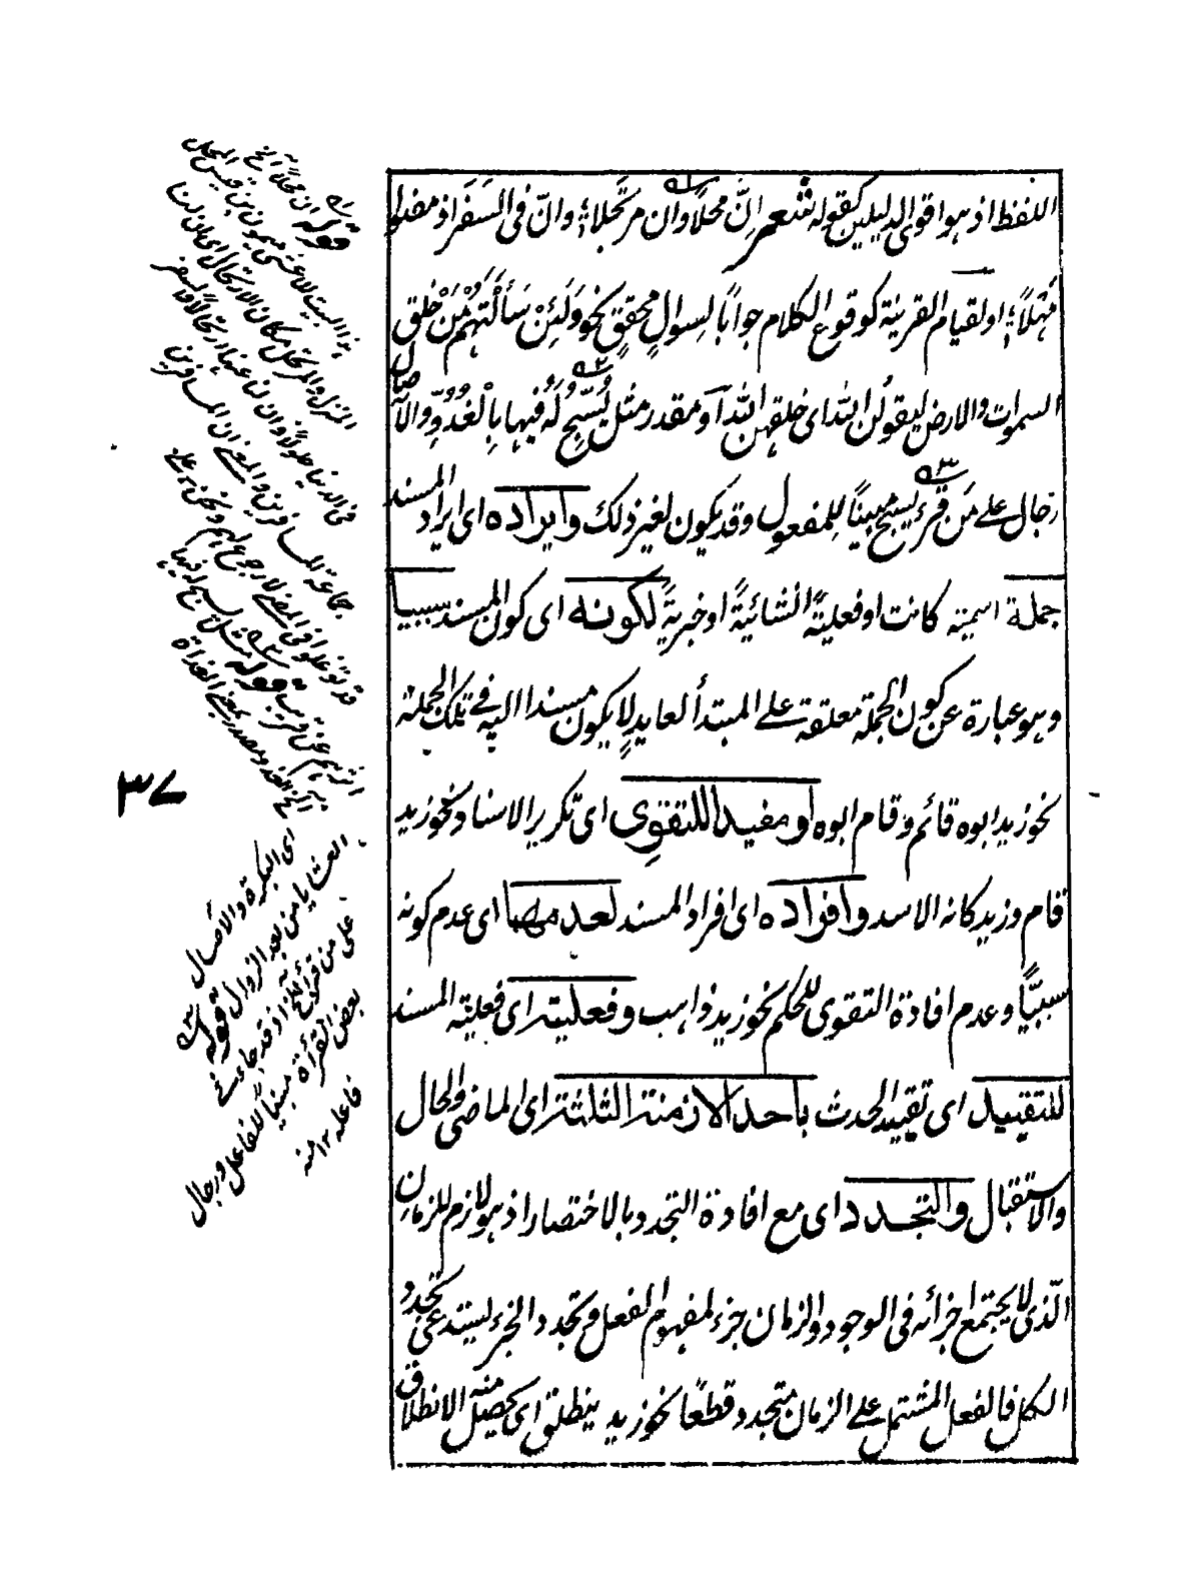 اللفظ اذ هو اقوی الدلیلین کقوله شعر اِنَّ محلًّا وان مرتَحَلاً؛ وانّ فی السَفَر اذ مضوا
مَهَلًا؛ اولقیام القرینة کوقوع الکلام جوابًا لسوالٍ محققٍ نحو وَلَئِنْ سَأَلْتَهُمْ مَنْ خلق
السموات والارض لیقولُن الله ای خلقهن الله او مقدر مثل یُسَبَّحُ لَهُ فیها بِالْغُدُوِّ والآصَالِ
رجال علے مَن قرء یسبح مبنیًا للمفعول وقد یکون لغیر ذلک وایراده ای ایراد المسند
جملة اسمیة کانت او فعلیةً انشائیةً او خبریةً لکونه ای کون المسند سببیا
وهو عبارة عن کون الجملة معلقة علے المبتدأ لعاید لا یکون مسندا الیه فے تلک الجملة
نحو زید ابوه قائم وقام ابوه او مفیدا للتقوِی ای تکریر الاسناد نحو زید
قام وزید کانه الاسد وافراده ای افراد المسند لعدمها ای عدم کونه
سببیًّا وعدم افادة التقوی للحکم نحو زید ذاهب وفعلیته ای فعلیة المسند
للتقیید ای تقیید الحدث باحد الازمنة الثلثة ای الماضی والحال
والاستقبال والتجدد ای مع افادة التجدد بالاختصار اذ هو لازم للزمان
الّذی لا یجتمع اجزائه فی الوجود والزمان جزء لمفهوم الفعل وتجدد الجزء لیستدعی تجدد
الکل فالفعل المشتمل علے الزمان متجدد قطعًا نحو زید ینطلق ای یحصل منه الانطلاق
قوله ان محلًّا الخ
هذا البیت للاعشی میمون بن قیس المحل
المنزل والمرتحل مکان الارتحال ای ان لنا
فی الدنیا حلولًا وان لنا عنها ارتحالًا والسفر
جماعة المسافرین والمعنے ان المسافرین
قوله مثل یسبح له فیها
الخ الغدو مصدر بمعنے الغداة
ای البکرة والآصال
العشایا من بعد الزوال قوله
علی من قرأ
بعض القرأة مبنیًا للفاعل ورجال
فاعله ۱۲ منه
۳۷